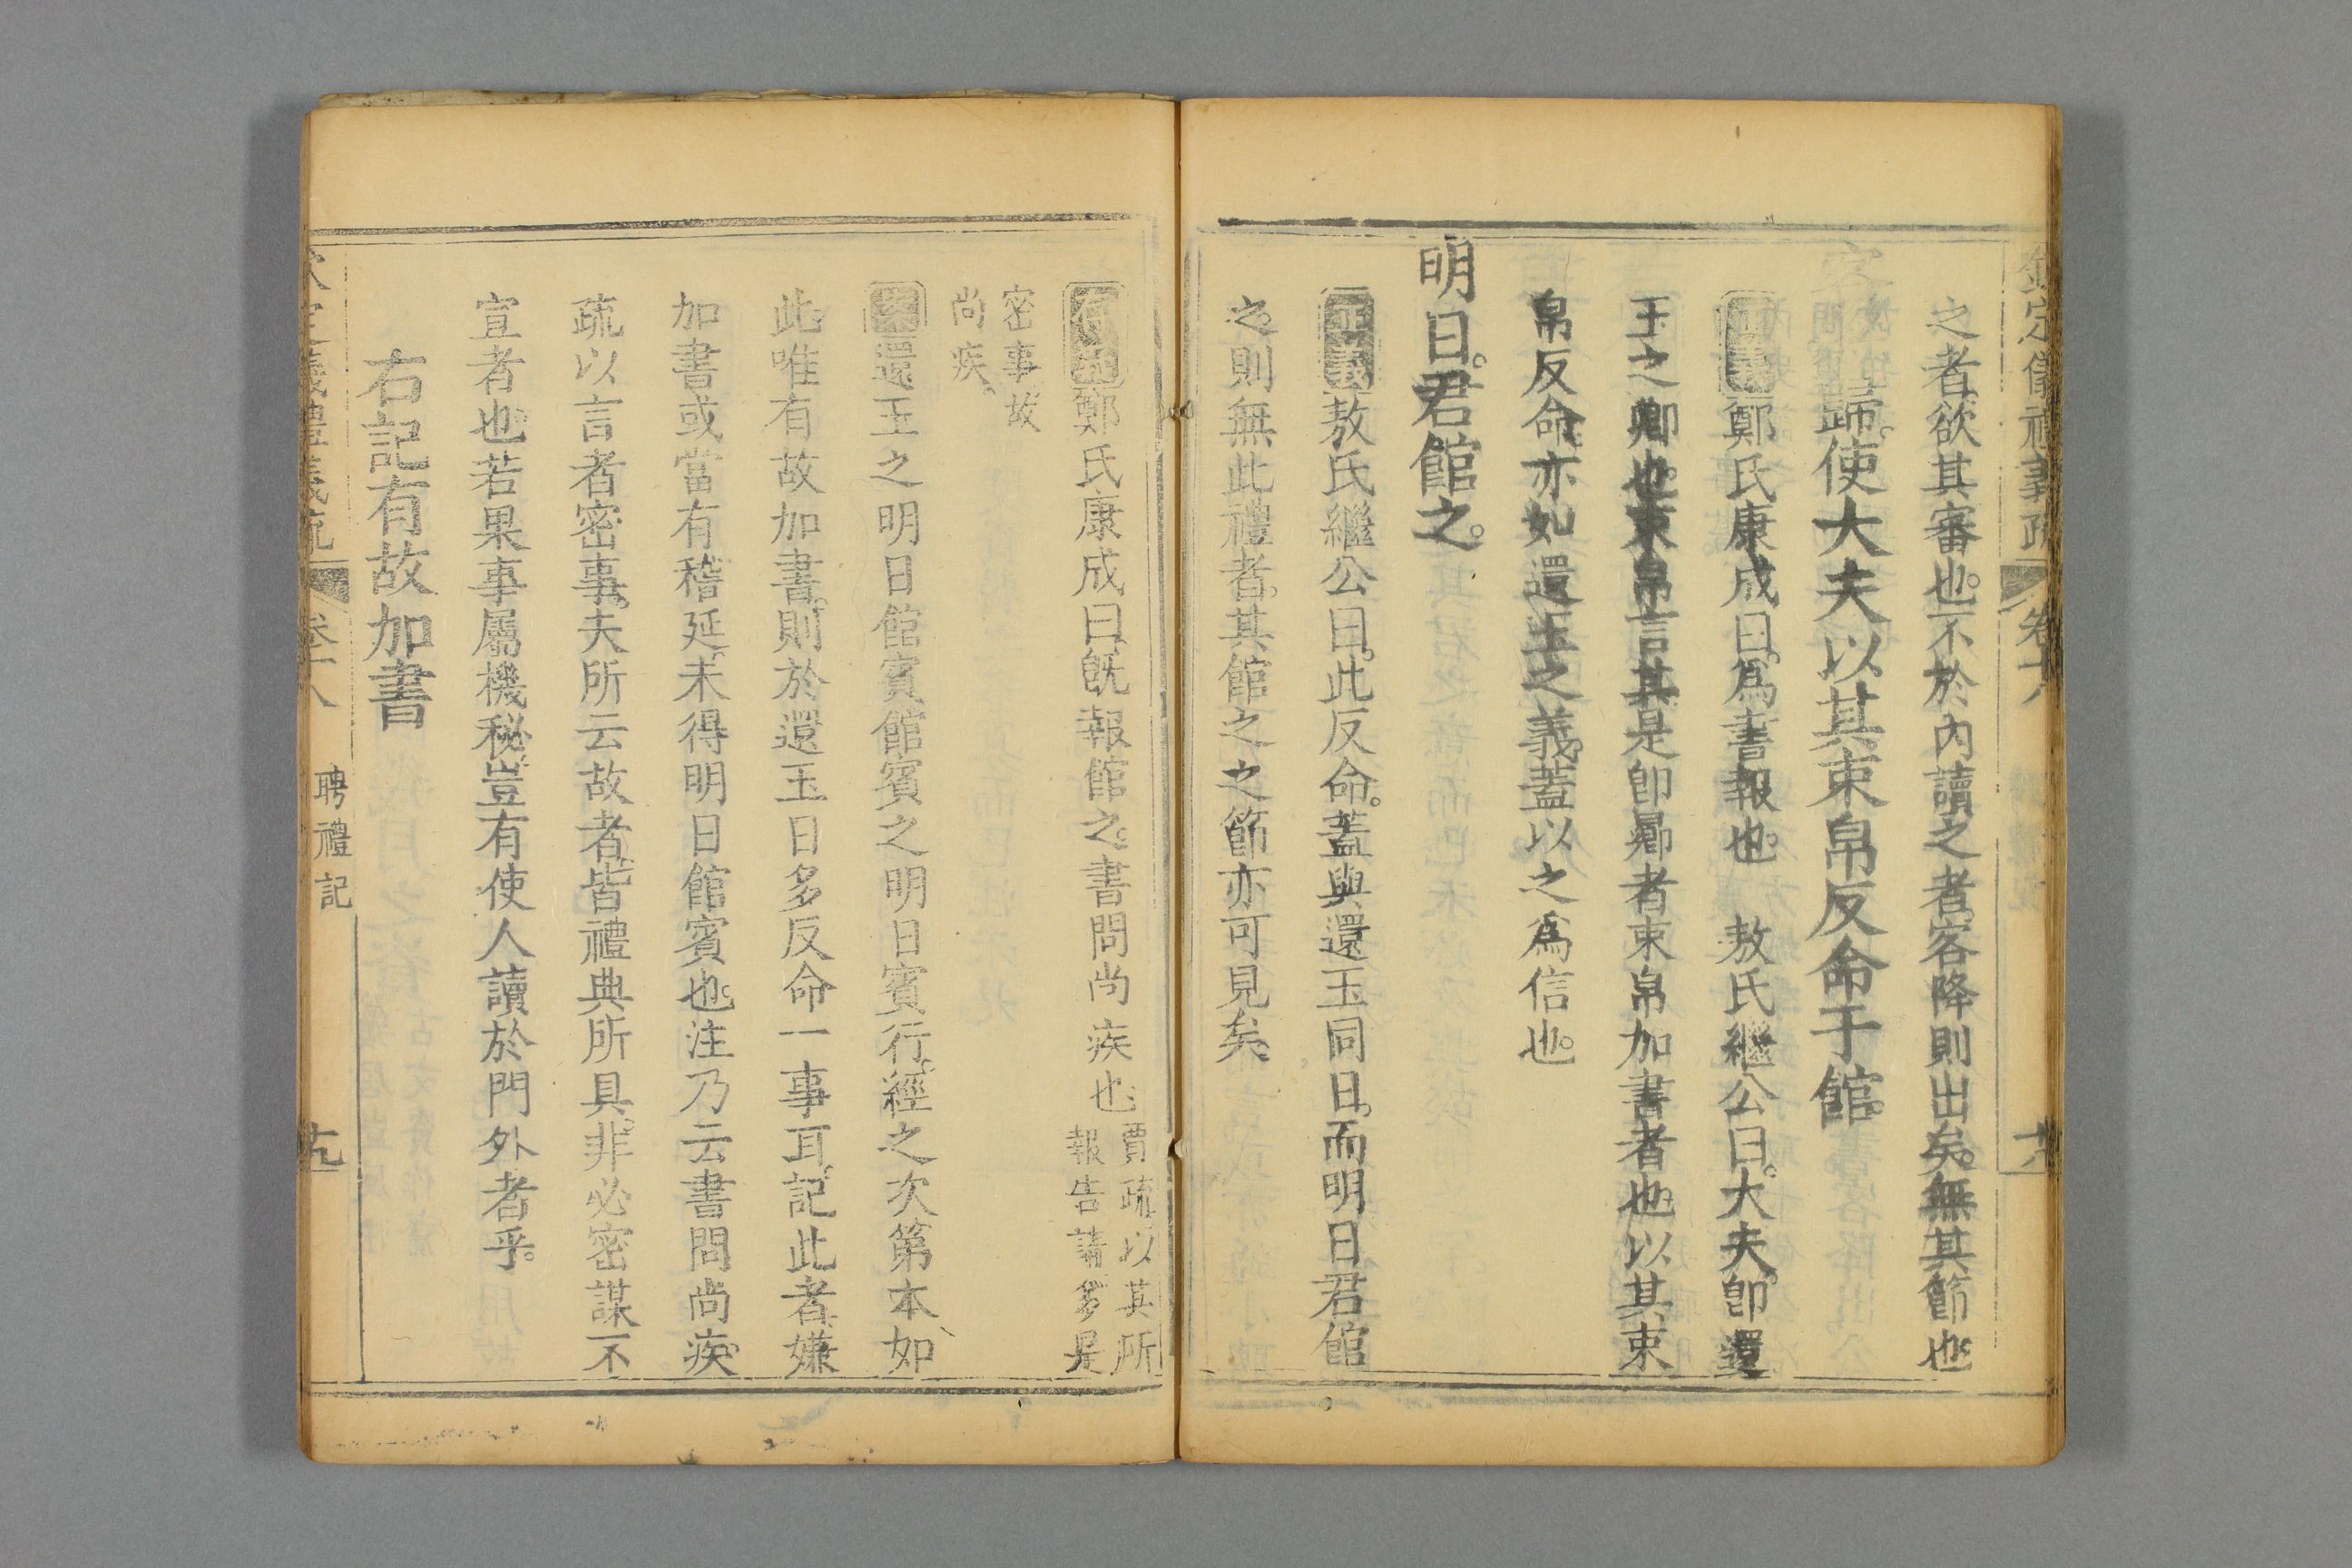 之者欲其審也。不於內讀之者。客降則出矣。無其節也。
歸。使大夫以其束帛反命于館。
鄭氏康成曰。爲書報也。 敖氏繼公曰。大夫。卽還
玉之卿也。束帛言其是卽曏者束帛加書者也。以其束
帛反命。亦如還玉之義。蓋以之爲信也。
明日。君館之。
正義敖氏繼公曰。此反命。蓋與還玉同日。而明日君館
之。則無此禮者。其館之之節亦可見矣。
存疑鄭氏康成曰。旣報館之。書問尚疾也。賈疏以其所
報告請多是
密事。故
尚疾。
案還玉之明日館賓。館賓之明日賓行。經之次第本如
此。唯有故加書。則於還玉日多反命一事耳。記此者。嫌
加書或當有稽延。未得明日館賓也。注乃云書問尚疾。
疏以言者密事。夫所云故者。皆禮典所具。非必密謀不
宣者也。若果事屬機秘。豈有使人讀於門外者乎。
右記有故加書
聘禮記